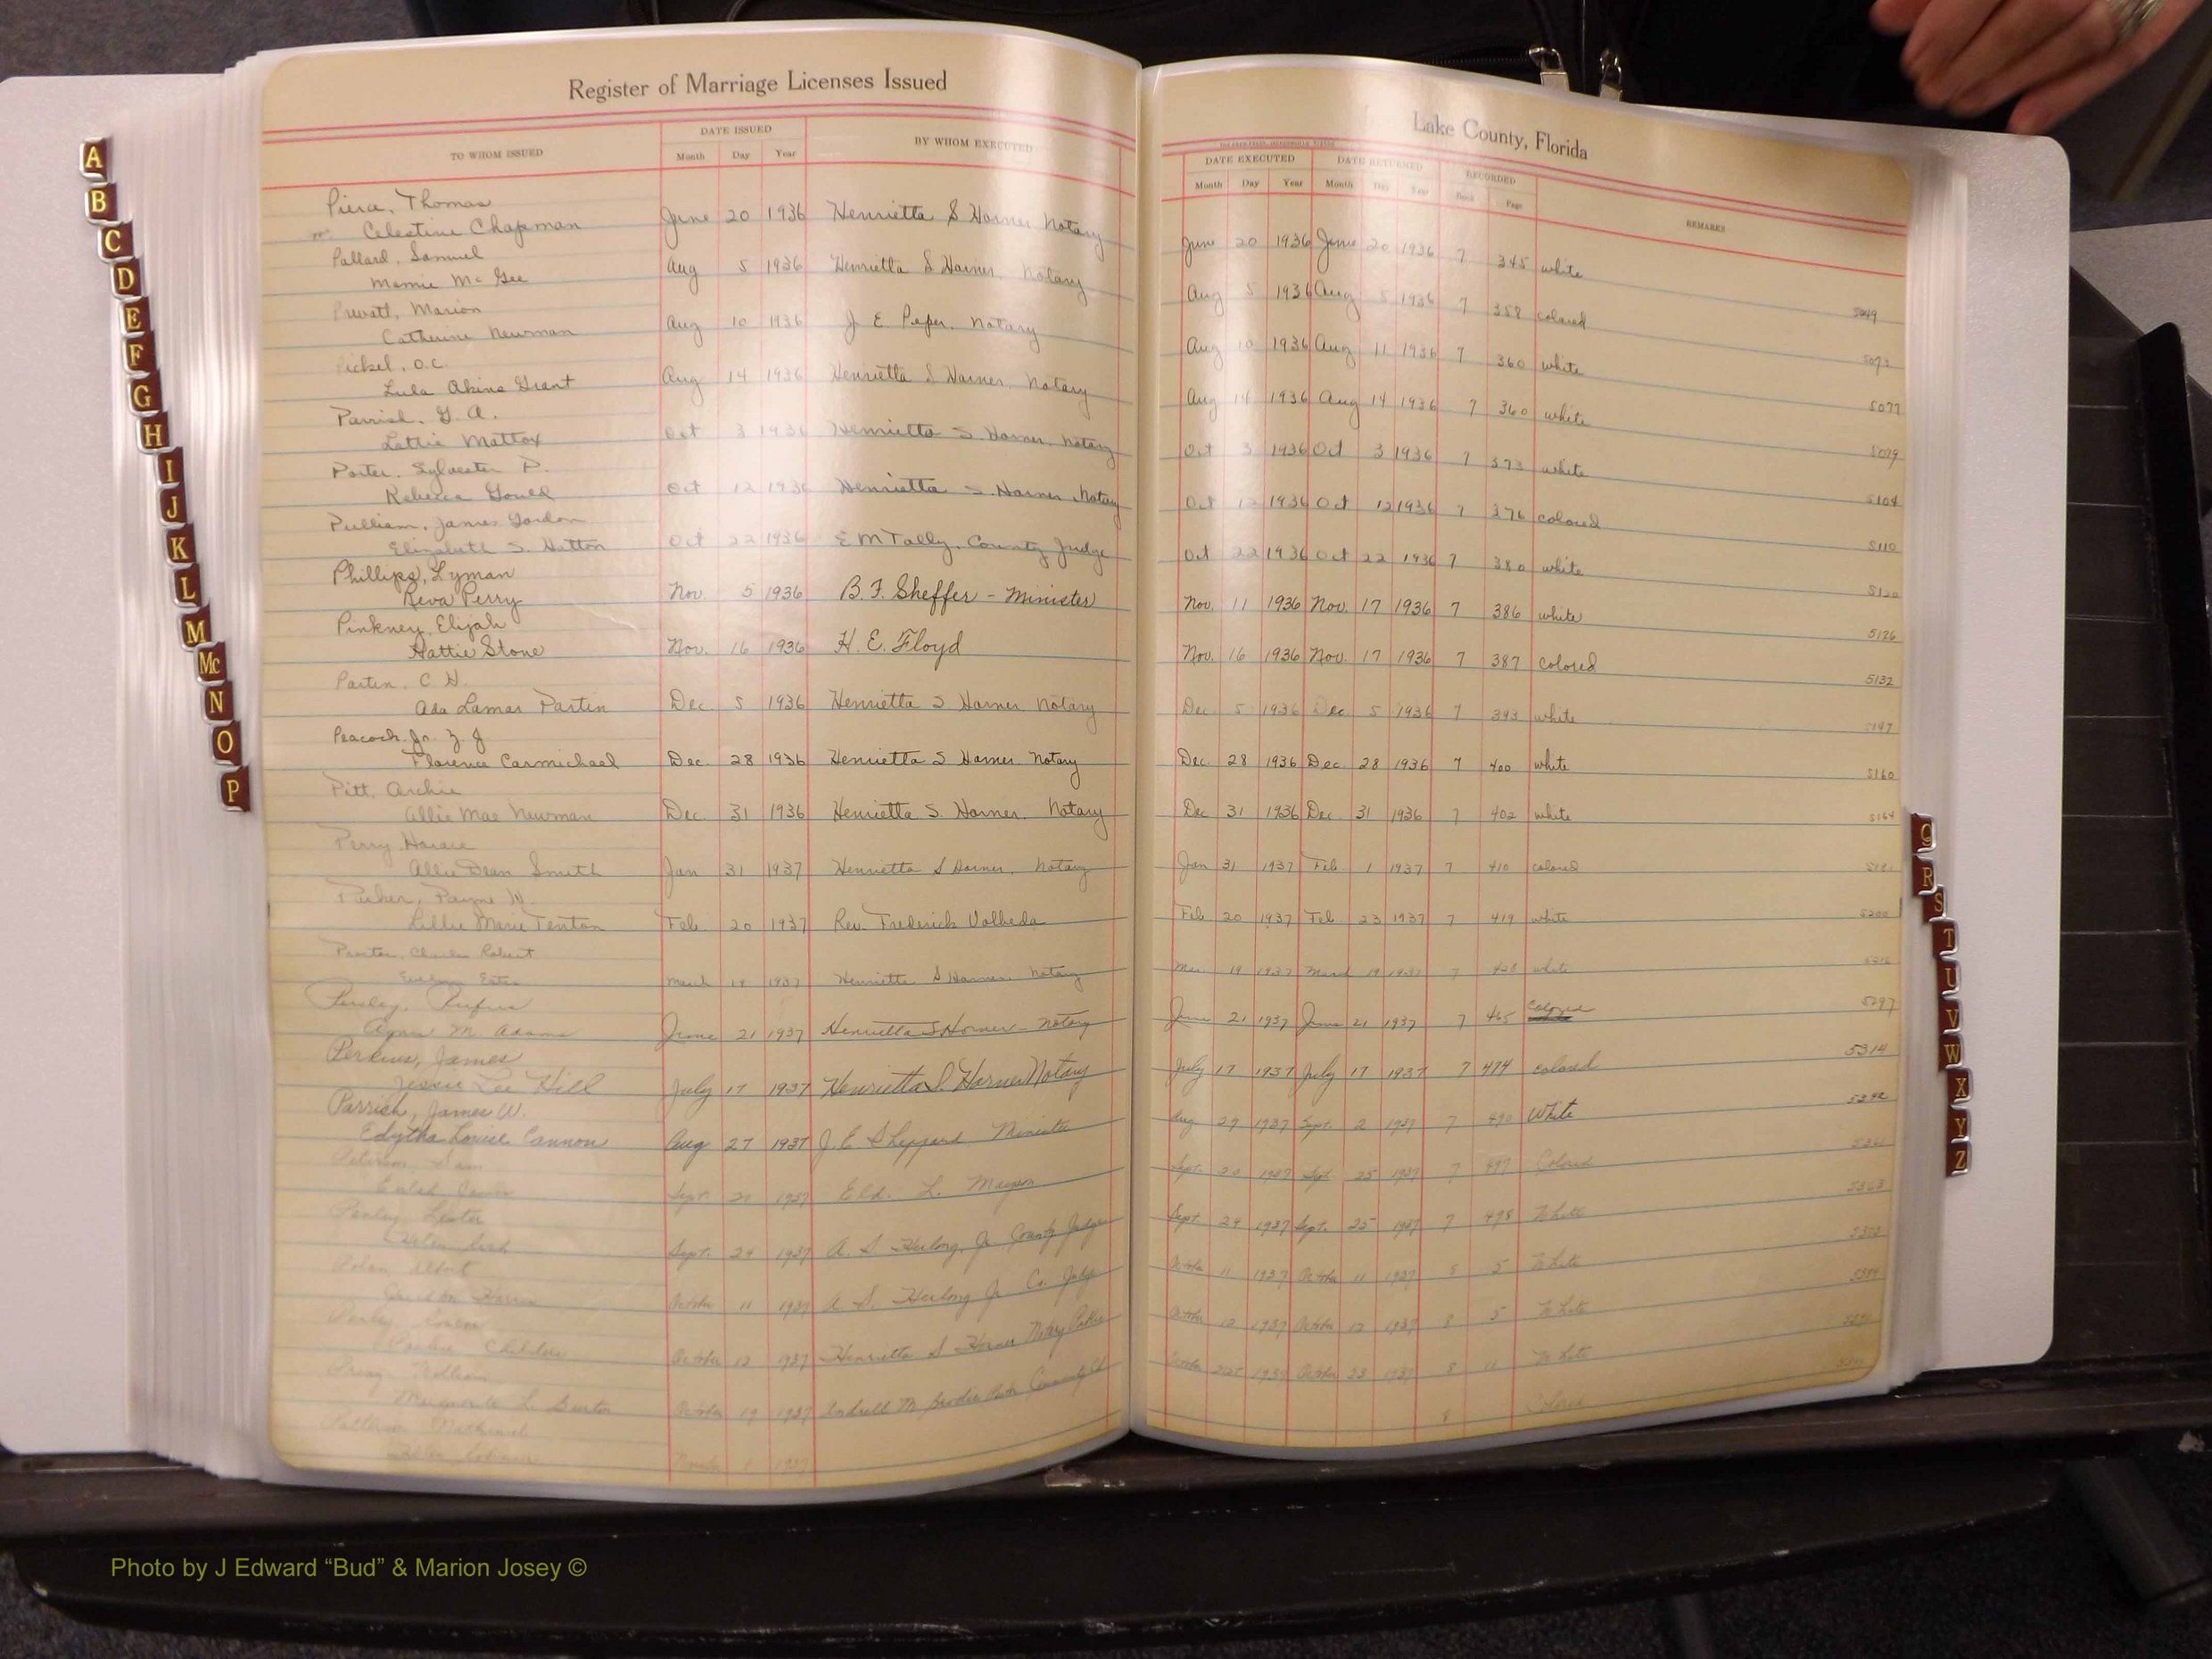 Register of Marriage Licenses Issued
TO WHOM ISSUED DATE ISSUED Month Day Year BY WHOM EXECUTED
Pierce, Thomas
Celestine Chapman June 20 1936 Henrietta S Horner Notary
Pollard, Samuel
Mamie Mc Gee Aug 5 1936 Henrietta S Horner, Notary
Prevatt, Marion
Catherine Newman Aug 10 1936 J. E Peper, Notary
Pickel, O.C.
Lula Akins Grant Aug 14 1936 Henrietta S Horner, Notary
Parrish, G. A.
Lottie Mattox Oct 3 1936 Henrietta S. Horner, Notary
Porter, Sylvester P.
Rebecca Gould Oct 12 1936 Henrietta S. Horner Notary
Pulliam, James Gordon
Elizabeth S. Hutton Oct 22 1936 E M Tally, County Judge
Phillips, Lyman
Reva Perry Nov. 5 1936 B. F. Sheffer - Minister
Pinkney, Elijah
Hattie Stone Nov. 16 1936 H. E. Floyd
Partin, C H.
Ada Lamar Partin Dec 5 1936 Henrietta S Horner Notary
Peacock, Jr. Z. J
Florence Carmichael Dec. 28 1936 Henrietta S Horner, Notary
Pitt, Archie
Allie Mae Newman Dec. 31 1936 Henrietta S. Horner, Notary
Perry, Horace
Allie Dean Smith Jan 31 1937 Henrietta S Horner, Notary
Parker, Payne W.
Lillie Marie Tenton Feb. 20 1937 Rev. Frederick Volbeda
Proctor, Charles Robert
Evelyn Estes March 19 1937 Henrietta S Horner, Notary
Rufus
M. Adams June 21 1937 Henrietta S Horner - Notary
Perkins, James
Jessie Lee Hill July 17 1937 Henrietta S. Horner Notary
Parrish, James W.
Edytha Louise Cannon Aug 27 1937 J. E Sheppard Minister
Peterson, Sam
Sept. 20 1937 Eld. L.
Lester
Sept. 24 1937 A. S Herlong, Jr County Judge
October 11 1937 A. S. Herlong Jr Co. Judge
Childers October 12 1937 Henrietta S Horner Notary Public
William
Marguerite L. October 19 1937
Patterson
1 1937
Lake County, Florida
DATE EXECUTED Month Day Year DATE RETURNED Month Day Year RECORDED Book Page REMARKS
June 20 1936 June 20 1936 7 345 white 5049
Aug 5 1936 Aug 5 1936 7 358 colored 5073
Aug 10 1936 Aug 11 1936 7 360 white 5077
Aug 14 1936 Aug 14 1936 7 360 white 5079
Oct 3 1936 Oct 3 1936 7 373 white 5104
Oct 12 1936 Oct 12 1936 7 376 colored 5110
Oct 22 1936 Oct 22 1936 7 380 white 5120
Nov. 11 1936 Nov. 17 1936 7 386 white 5126
Nov. 16 1936 Nov. 17 1936 7 387 colored 5132
Dec. 5 1936 Dec 5 1936 7 393 white 5147
Dec. 28 1936 Dec. 28 1936 7 400 white 5160
Dec 31 1936 Dec. 31 1936 7 402 white 5164
Jan 31 1937 Feb. 1 1937 7 410 colored
Feb 20 1937 Feb. 23 1937 7 419 white 5200
Mar 19 1937 March 19 1937 7 428 white
June 21 1937 June 21 1937 7 465 Colored 5297
July 17 1937 July 17 1937 7 474 colored 5314
Aug 29 1937 Sept. 2 1937 7 490 White 5342
Sept. 20 1937 Sept 25 1937 7 497 Colored
Sept 24 1937 Sept. 25 1937 7 498 White 5363
October 11 1937 October 11 1937 8 5 White
October 12 1937 October 12 1937 8 5 White
October 21st 1937 October 23 1937 8 11 White
8 Colored
A
B
C
D
E
F
G
H
I
J
K
L
M
Mc
N
O
P
Q
R
S
T
U
V
W
X
Y
Z
Photo by J Edward “Bud” & Marion Josey ©